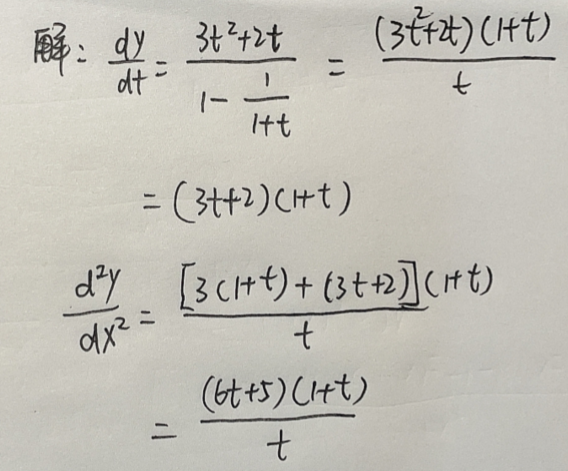 解: dy/dt = (3t²+2t)/(1 - 1/(1+t)) = (3t²+2t)(1+t)/t
= (3t+2)(1+t)
d²y/dx² = [3(1+t)+(3t+2)](1+t)/t
= (6t+5)(1+t)/t